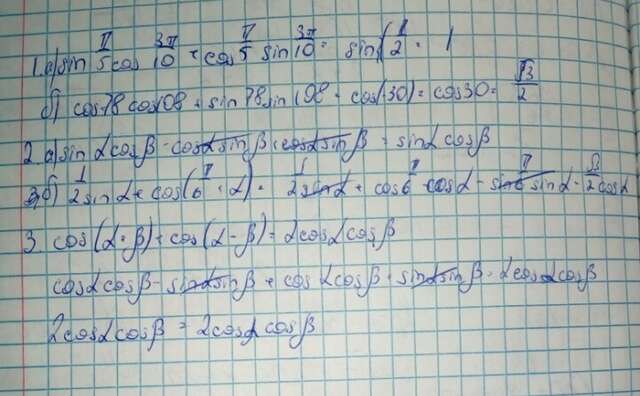 1. а) sin π/5 cos 3π/10 + cos π/5 sin 3π/10 = sin π/2 = 1
б) cos78 cos108 + sin 78 sin 108 = cos(30) = cos30 = √3/2
2. а) sin α cos β - cos α sin β + cos α sin β = sin α cos β
б) 1/2 sin α + cos(π/6 + α) = 1/2 sin α + cos π/6 cos α - sin π/6 sin α = √3/2 cos α
3. cos(α+β) + cos(α-β) = 2cos α cos β
cos α cos β - sin α sin β + cos α cos β + sin α sin β = 2cos α cos β
2cos α cos β = 2cos α cos β